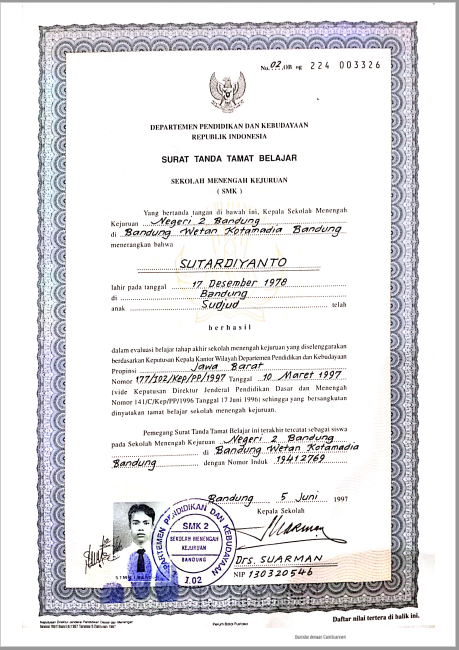 No. 02 OB og 224 003326
DEPARTEMEN PENDIDIKAN DAN KEBUDAYAAN
REPUBLIK INDONESIA
SURAT TANDA TAMAT BELAJAR
SEKOLAH MENENGAH KEJURUAN
( SMK )
Yang bertanda tangan di bawah ini, Kepala Sekolah Menengah
Kejuruan Negeri 2 Bandung
di Bandung Wetan Kotamadia Bandung
menerangkan bahwa
SUTARDIYANTO
lahir pada tanggal 17 Desember 1978
di Bandung
anak Sudjud telah
berhasil
dalam evaluasi belajar tahap akhir sekolah menengah kejuruan yang diselenggarakan
berdasarkan Keputusan Kepala Kantor Wilayah Departemen Pendidikan dan Kebudayaan
Propinsi Jawa Barat
Nomor 177/102/Kep/PP/1997 Tanggal 10 Maret 1997
(vide Keputusan Direktur Jenderal Pendidikan Dasar dan Menengah
Nomor 141/C/Kep/PP/1996 Tanggal 17 Juni 1996) sehingga yang bersangkutan
dinyatakan tamat belajar sekolah menengah kejuruan.
Pemegang Surat Tanda Tamat Belajar ini terakhir tercatat sebagai siswa
pada Sekolah Menengah Kejuruan Negeri 2 Bandung
di Bandung Wetan Kotamadia
Bandung dengan Nomor Induk 19412769
Bandung 5 Juni 1997
Kepala Sekolah
PARTEMEN PENDIDIKAN DAN KEBUDAYAAN
SMK 2
SEKOLAH MENENGAH
KEJURUAN
BANDUNG
I.02
Drs SUARMAN
NIP 130320546
Daftar nilai tertera di balik ini.
Keputusan Direktur Jenderal Pendidikan Dasar dan Menengah
Perum Peruri